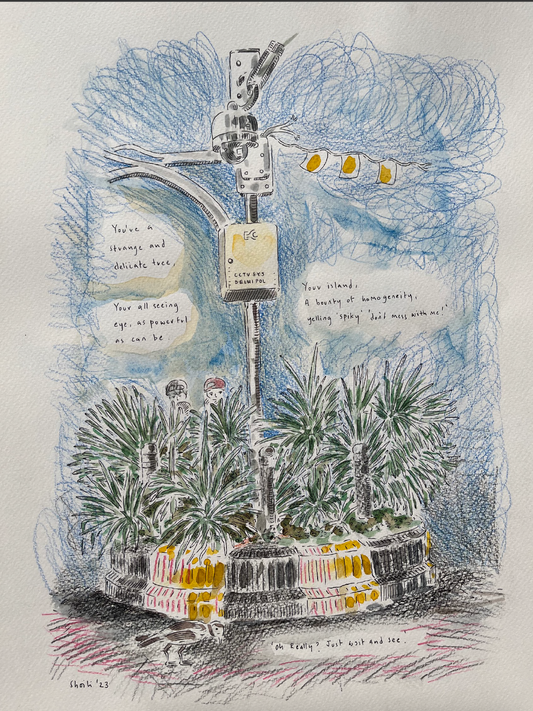 CCTV SYS
DELHI POL
You've a
strange and
delicate tree,
Your all seeing
eye, as powerful
as can be
Your island,
A bounty of homogeneity,
yelling 'spiky' 'don't mess with me!'
'Oh Really? Just wait and see
'23